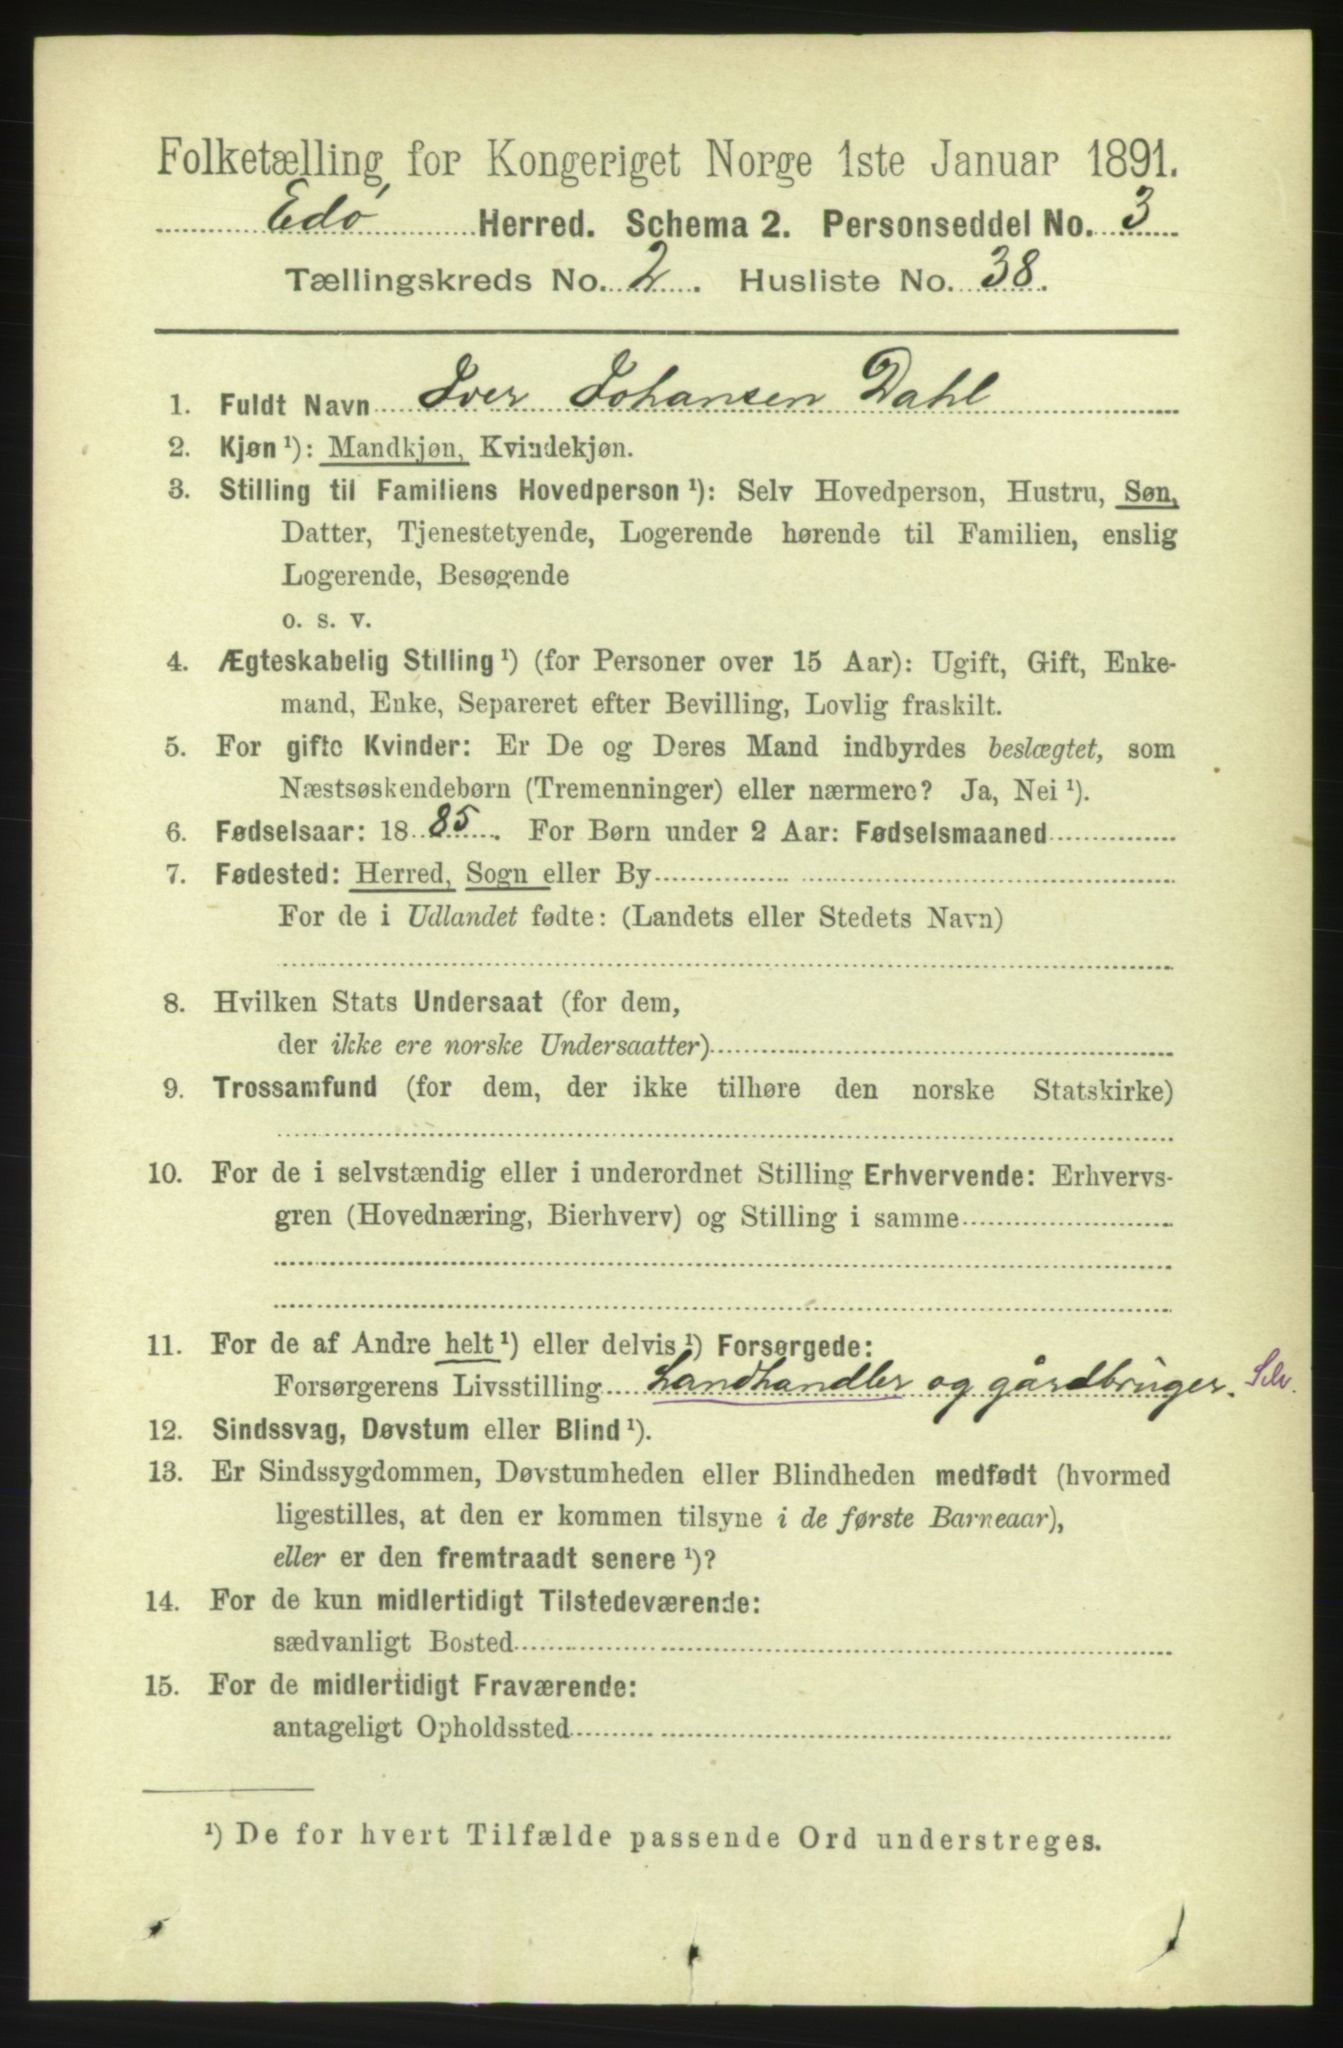 Folketælling for Kongeriget Norge 1ste Januar 1891.
Edø Herred. Schema 2. Personseddel No. 3
Tællingskreds No. 2. Husliste No. 38.
1. Fuldt Navn Iver Johansen Dahl
2. Kjøn ¹): Mandkjøn, Kvindekjøn.
3. Stilling til Familiens Hovedperson ¹): Selv Hovedperson, Hustru, Søn,
Datter, Tjenestetyende, Logerende hørende til Familien, enslig
Logerende, Besøgende
o. s. v.
4. Ægteskabelig Stilling ¹) (for Personer over 15 Aar): Ugift, Gift, Enke-
mand, Enke, Separeret efter Bevilling, Lovlig fraskilt.
5. For gifte Kvinder: Er De og Deres Mand indbyrdes beslægtet, som
Næstsøskendebørn (Tremenninger) eller nærmere? Ja, Nei ¹).
6. Fødselsaar: 1885. For Børn under 2 Aar: Fødselsmaaned
7. Fødested: Herred, Sogn eller By
For de i Udlandet fødte: (Landets eller Stedets Navn)
8. Hvilken Stats Undersaat (for dem,
der ikke ere norske Undersaatter)
9. Trossamfund (for dem, der ikke tilhøre den norske Statskirke)
10. For de i selvstændig eller i underordnet Stilling Erhvervende: Erhvervs-
gren (Hovednæring, Bierhverv) og Stilling i samme
11. For de af Andre helt ¹) eller delvis ¹) Forsørgede:
Forsørgerens Livsstilling Landhandler og gårdbruger. Selv.
12. Sindssvag, Døvstum eller Blind ¹).
13. Er Sindssygdommen, Døvstumheden eller Blindheden medfødt (hvormed
ligestilles, at den er kommen tilsyne i de første Barneaar),
eller er den fremtraadt senere ¹)?
14. For de kun midlertidigt Tilstedeværende:
sædvanligt Bosted
15. For de midlertidigt Fraværende:
antageligt Opholdssted
¹) De for hvert Tilfælde passende Ord understreges.